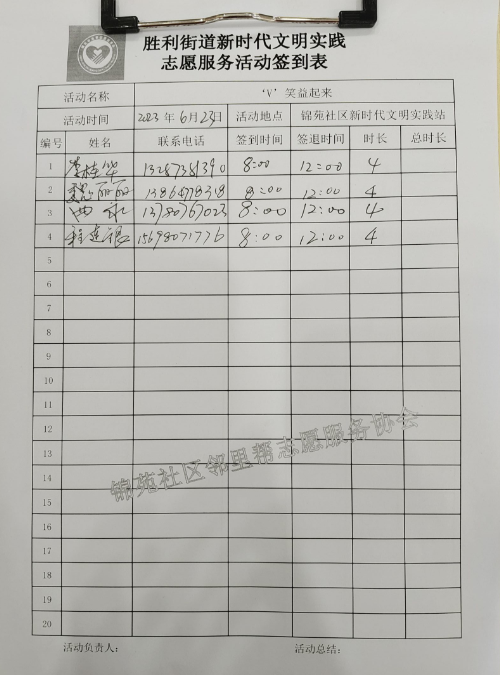 胜利街道新时代文明实践
志愿服务活动签到表
活动名称 'V'笑益起来
活动时间 2023年6月23日 活动地点 锦苑社区新时代文明实践站
编号 姓名 联系电话 签到时间 签退时间 时长 总时长
1 李桂华 13287381390 8:00 12:00 4
2 丽丽 8:00 12:00 4
3 13780767023 8:00 12:00 4
4 程建银 15698071776 8:00 12:00 4
5
6
7
8
9
10
11
12
13
14
15
16
17
18
19
20
锦苑社区邻里帮志愿服务协会
活动负责人: 活动总结: